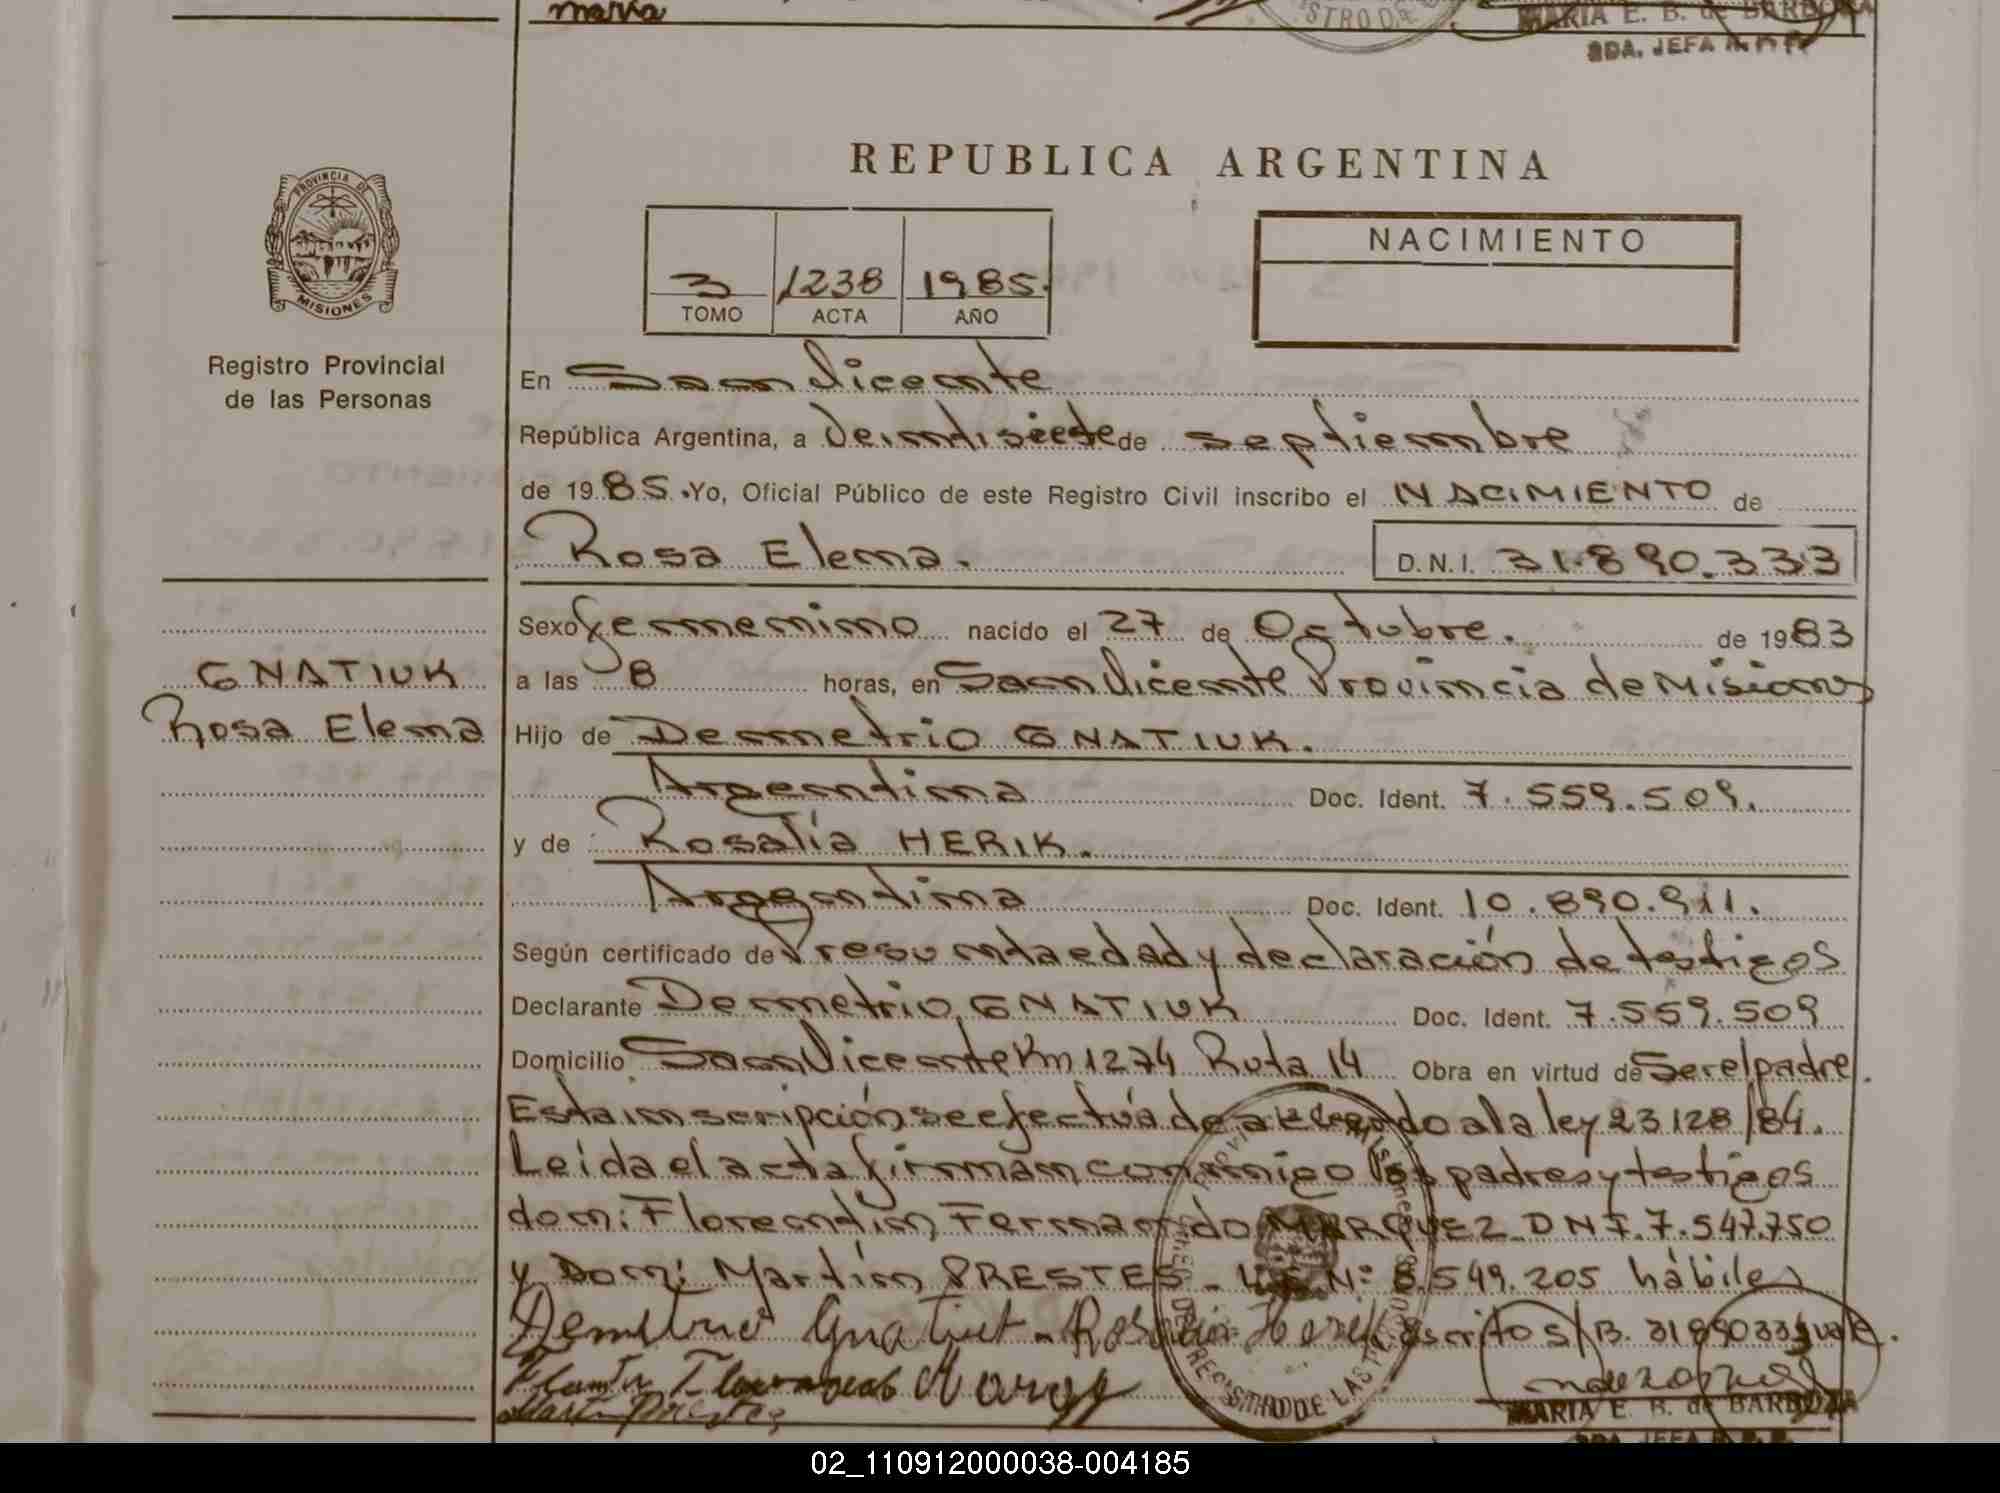 maría
STRO DE
MARIA E. B. de BARBOZA
2DA. JEFA
PROVINCIA DE
MISIONES
Registro Provincial
de las Personas
GNATIUK
Rosa Elena
REPUBLICA ARGENTINA
3 1238 1985.
TOMO ACTA AÑO
NACIMIENTO
En San Vicente
República Argentina, a Veintisiete de septiembre
de 1985. Yo, Oficial Público de este Registro Civil inscribo el NACIMIENTO de
Rosa Elena. D.N.I. 31.890.333
Sexo femenino nacido el 27 de Octubre. de 1983
a las 8 horas, en San Vicente Provincia de Misiones
Hijo de Demetrio GNATIUK.
Argentina Doc. Ident. 7.559.509.
y de Rosalía HERIK.
Argentina Doc. Ident. 10.890.911.
Según certificado de Presunta edad y declaración de testigos
Declarante Demetrio GNATIUK Doc. Ident. 7.559.509
Domicilio San Vicente Km 1274 Ruta 14 Obra en virtud de Ser el padre.
Esta inscripción se efectúa de acuerdo a la ley 23128/84.
Leída el acta firman conmigo los padres y testigos
don: Florentín Fernando MARQUEZ DNI. 7.547.750
y Don: Martín PRESTES - N° 8.549.205 hábiles
Demetrio Gnatiuk - Rosalia Herik escritos/B. 31890333 vale.
Martin Prestes
REGISTRO DE LAS
MARIA E. B. de BARBOZA
2DA. JEFA
02_110912000038-004185